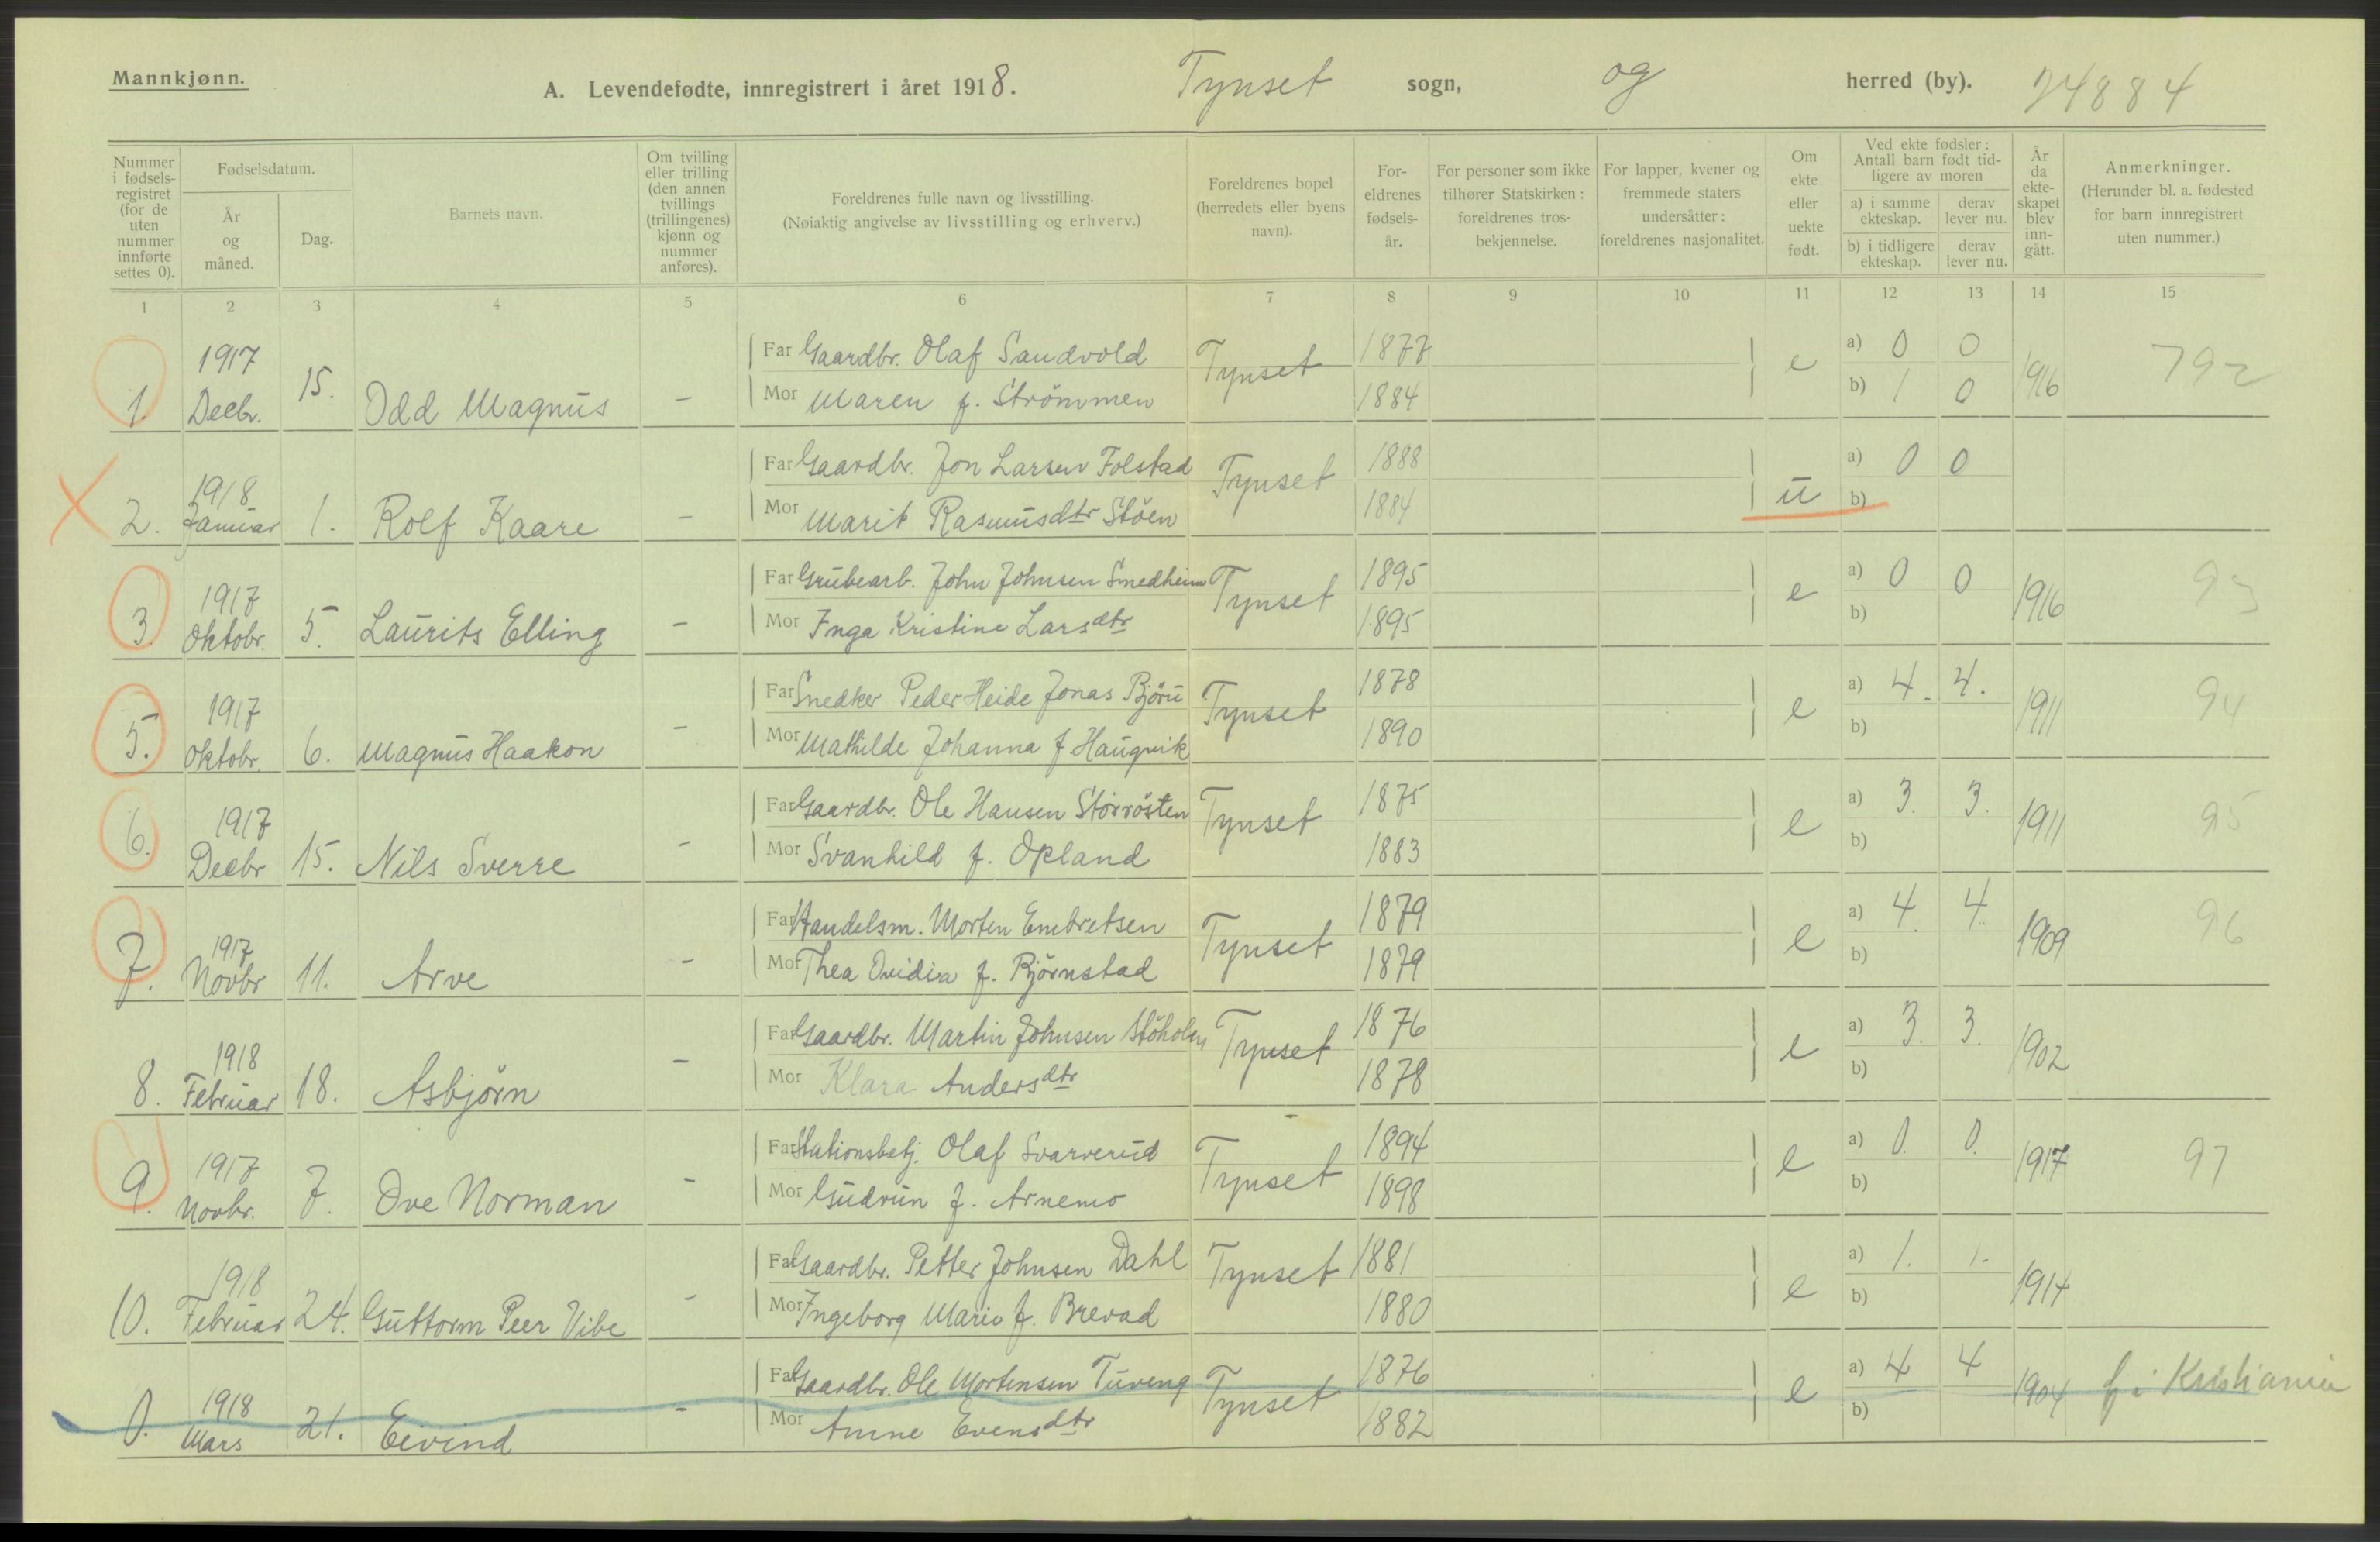 Mannkjønn.
A. Levendefødte, innregistrert i året 1918. Tynset sogn, og herred (by). 24884
Nummer i fødsels-registret (for de uten nummer innførte settes 0).
Fødselsdatum.
År og måned.
Dag.
Barnets navn.
Om tvilling eller trilling (den annen tvillings (trillingenes) kjønn og nummer anføres).
Foreldrenes fulle navn og livsstilling.
(Nøiaktig angivelse av livsstilling og erhverv.)
Foreldrenes bopel (herredets eller byens navn).
For-eldrenes fødsels-år.
For personer som ikke tilhører Statskirken: foreldrenes tros-bekjennelse.
For lapper, kvener og fremmede staters undersåtter: foreldrenes nasjonalitet.
Om ekte eller uekte født.
Ved ekte fødsler: Antall barn født tid-ligere av moren
a) i samme ekteskap. derav lever nu.
b) i tidligere ekteskap. derav lever nu.
År da ekte-skapet blev inn-gått.
Anmerkninger.
(Herunder bl. a. fødested for barn innregistrert uten nummer.)
1 2 3 4 5 6 7 8 9 10 11 12 13 14 15
1. 1917 Decbr. 15. Odd Magnus - Far Gaardbr. Olaf Sandvold Tynset 1877 e a) 0 0 1916 792
Mor Maren f. Strömmen 1884 b) 1 0
2. 1918 Januar 1. Rolf Kaare - Far Gaardbr. Jon Larsen Folstad Tynset 1888 u a) 0 0
Mor Marit Rasmusdtr Stöen 1884 b)
3. 1917 Oktobr. 5. Laurits Elling - Far Grubearb. John Johnsen Smedheim Tynset 1895 e a) 0 0 1916 93
Mor Inga Kristine Larsdtr 1895 b)
5. 1917 Oktobr. 6. Magnus Haakon - Far Snedker Peder Heide Jonas Björu Tynset 1878 e a) 4. 4. 1911 94
Mor Mathilde Johanna f Haugvik 1890 b)
6. 1917 Decbr 15. Nils Sverre - Far Gaardbr. Ole Hansen Störrösten Tynset 1875 e a) 3. 3. 1911 95
Mor Svanhild f. Opland 1883 b)
7. 1917 Novbr 11. Arve - Far Handelsm. Morten Embretsen Tynset 1879 e a) 4. 4. 1909 96
Mor Thea Ovidia f. Björnstad 1879 b)
8. 1918 Februar 18. Asbjörn - Far Gaardbr. Martin Johnsen Stöholen Tynset 1876 e a) 3. 3. 1902
Mor Klara Andersdtr 1878 b)
9. 1917 Novbr. 7. Ove Norman - Far Stationsbetj. Olaf Svarverud Tynset 1894 e a) 0. 0. 1917 97
Mor Gudrun f. Arnemo 1898 b)
10. 1918 Februar 24. Guttorm Peer Vibe - Far Gaardbr. Petter Johnsen Dahl Tynset 1881 e a) 1. 1. 1914
Mor Ingeborg Marie f. Brevad 1880 b)
0. 1918 Mars 21. Eivind - Far Gaardbr. Ole Mortensen Tuveng Tynset 1876 e a) 4 4 1904 f i Kristiania
Mor Anne Evensdtr 1882 b)